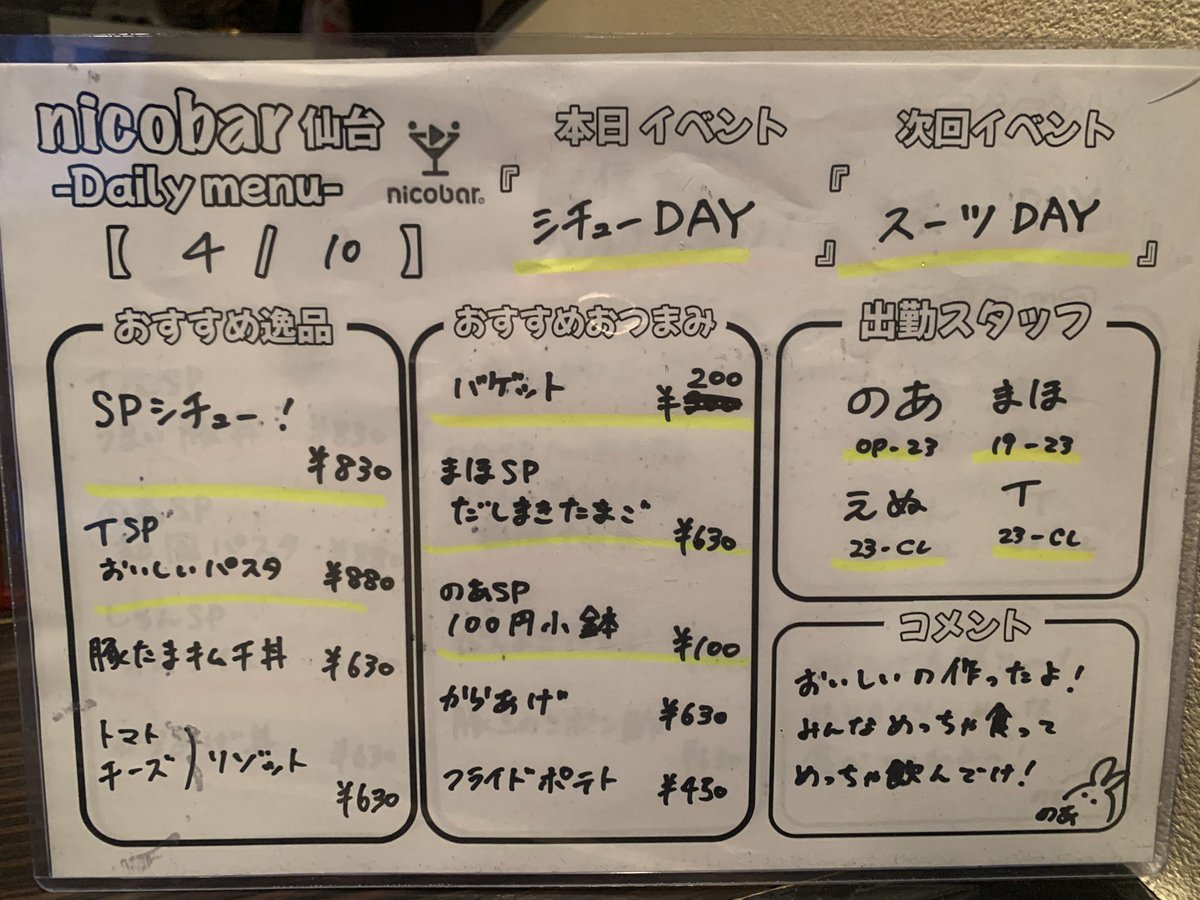 nicobar 仙台
-Daily menu-
nicobar.
【 4 / 10 】
本日イベント
『シチューDAY』
次回イベント
『スーツDAY』
おすすめ逸品
SPシチュー!
¥830
TSP
おいしいパスタ ¥880
豚たまキムチ丼 ¥630
トマト
チーズ)リゾット
¥630
おすすめおつまみ
バゲット ¥200
まほSP
だしまきたまご ¥630
のあSP
100円小鉢 ¥100
からあげ ¥630
フライドポテト ¥450
出勤スタッフ
のあ まほ
OP-23 19-23
えぬ T
23-CL 23-CL
コメント
おいしいの作ったよ!
みんなめっちゃ食って
めっちゃ飲んでけ!
のあ